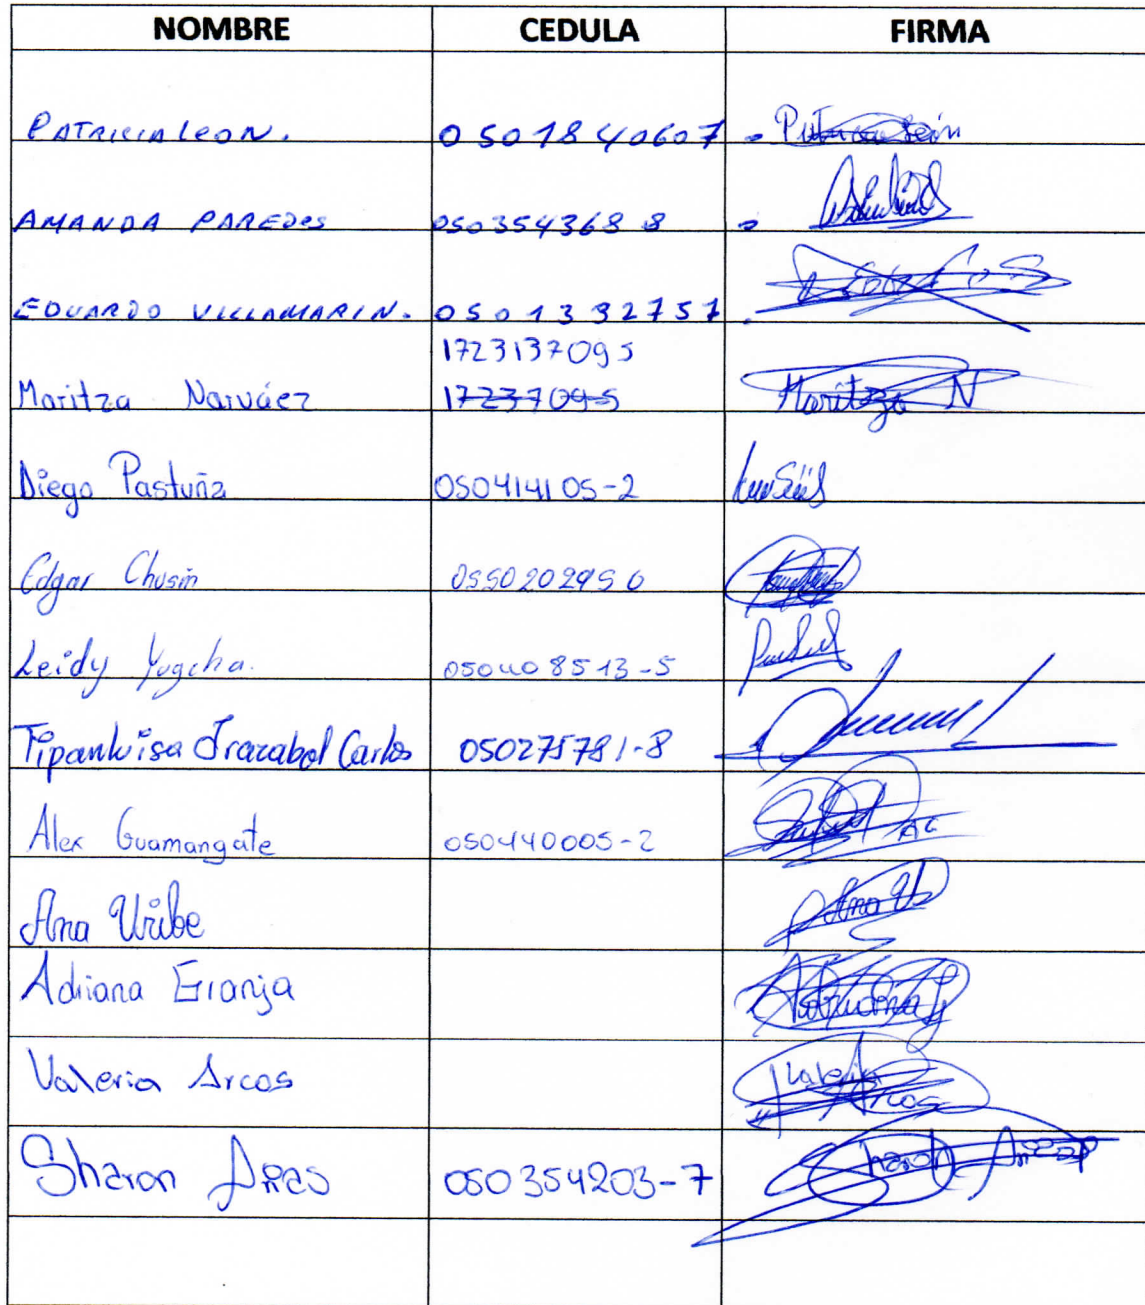 NOMBRE CEDULA FIRMA
PATRICIA LEON. 0501840607 Patricia León
AMANDA PAREDES 0503543688
EDUARDO VILLAMARIN. 0501332757
1723137095
Maritza Narváez 17237095 Maritza N
Diego Pastuña 050414105-2
Edgar Chusin 0550202950
Leidy Yugcha. 050408513-5
Tipanluisa Carlos 050275781-8
Alex Guamangate 050440005-2 AG
Ana Uribe Ana U
Adriana Granja
Valeria Arcos Valeria Arcos
Sharon 050354203-7 Sharon